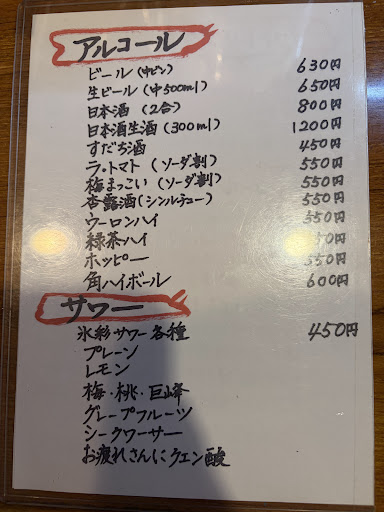 アルコール
ビール(中ビン) 630円
生ビール(中500ml) 650円
日本酒(2合) 800円
日本酒生酒(300ml) 1200円
すだち酒 450円
ラ・トマト(ソーダ割) 550円
梅まっこい(ソーダ割) 550円
杏露酒(シンルチュー) 550円
ウーロンハイ 550円
緑茶ハイ
ホッピー 550円
角ハイボール 600円
サワー
氷彩サワー各種 450円
プレーン
レモン
梅・桃・巨峰
グレープフルーツ
シークワーサー
お疲れさんにクエン酸